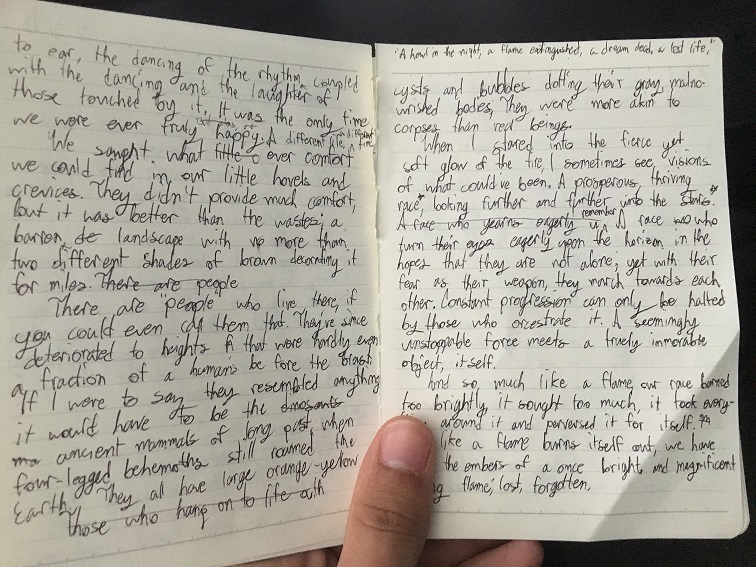 to ear, the dancing of the rhythm, coupled
with the dancing and the laughter of
those touched by it, It was the only time
we were ever truly happy. A different life, a different time.
We saught what little c ever comfort
we could find in our little hovels and
crevices. They didn't provide much comfort,
but it was better than the wastes; a
barren, de landscape with no more than
two different shades of brown decorating it
for miles. There are people
There are "people" who live there, if
you could even call them that. They've since
deteriorated to heights that were hardly even
a fraction of a humans before the blast.
If I were to say they resembled anything
it would have to be the
ma ancient mammals of long past, when
four-legged behemoths still roamed the
Earth. They all have large orange-yellow
those who hang on to life with
"A howl in the night, a flame extinguished, a dream dead, a lost life,"
cysts and bubbles dotting their gray, malno-
urished bodes, They were more akin to
corpses than real beings.
When I stared into the fierce yet
soft glow of the fire, I sometimes see, visions
of what could've been. A prosperous, thriving
race, looking further and further unto the stars.
A race who yearns eagerly u remember A race who who
turn their eyes eagerly upon the horizon in the
hopes that they are not alone, yet with their
fear as their weapon, they march towards each
other. Constant progression can only be halted
by those who orcestrate it. A seemingly
unstoppable force meets a truely immovable
object, itself.
And so, much like a flame, our race burned
too brightly, it sought too much, it took every-
around it and perversed it for itself.
like a flame burns itself out, we have
the embers of a once bright, and magnificent
flame; lost, forgotten.